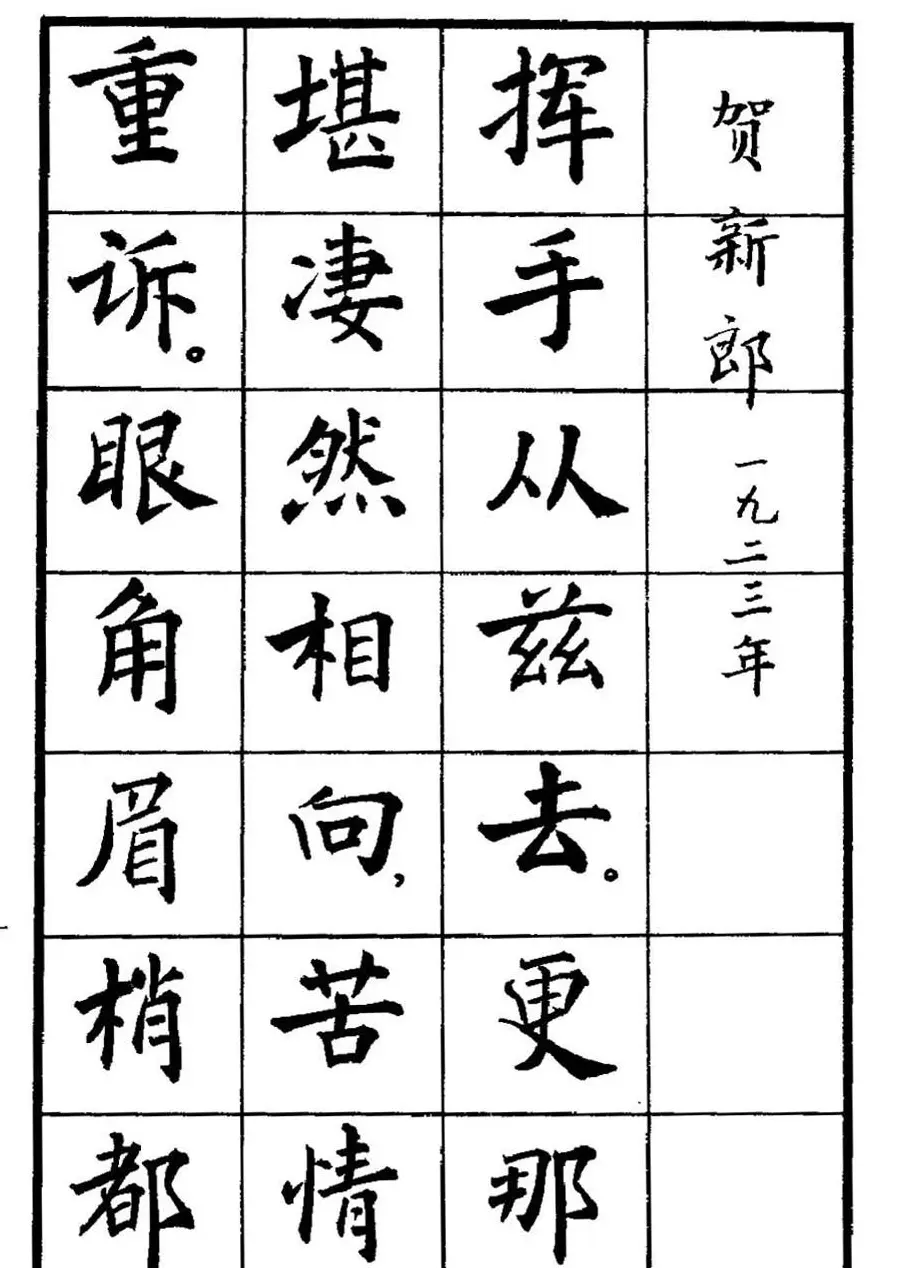 贺新郎 一九二三年
挥手从兹去。更那
堪凄然相向,苦情
重诉。眼角眉梢都